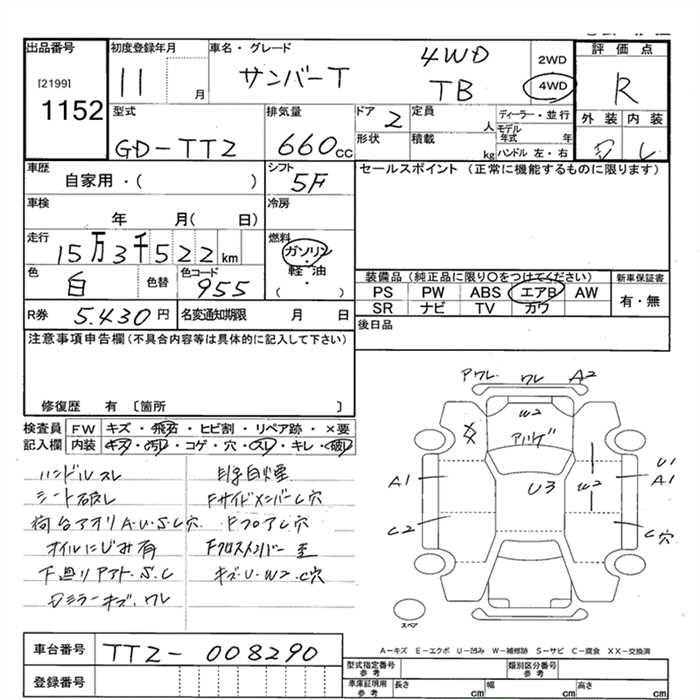 出品番号
[2199]
1152
初度登録年月
11 月
車名・グレード
サンバーT
4WD
TB
2WD
4WD
評価点
R
外装 内装
型式
GD-TT2
排気量
660cc
ドア
2
形状
定員
人
積載
kg
ディーラー・並行
モデル年式 年
ハンドル 左・右
車歴
自家用・( )
シフト
5F
セールスポイント (正常に機能するものに限ります)
車検
年 月( 日)
冷房
走行
15万3千522km
燃料
ガソリン
・
軽油
( )
色
白
色替
色コード
955
装備品 (純正品に限り〇をつけてください)
PS PW ABS エアB AW
SR ナビ TV カワ
新車保証書
有・無
R券 5.430円
名変通知期限 月 日
後日品
注意事項申告欄(不具合内容等は具体的に記入して下さい)
修復歴 有 〔箇所 〕
検査員記入欄
FW キズ・飛石・ヒビ割・リペア跡・×要
内装 キズ・汚レ・コゲ・穴・スレ・キレ・破レ
ハンドルスレ
シート破レ
荷台アオリA.U.S.C穴
オイルにじみ有
下廻りアト.S.C
Dミラーキズ.ワレ
自煙
FサイドメンバーC穴
FフロアC穴
Fクロスメンバー
キズ.U.W2.C穴
ワレ A2
W2
U3
A1
C2
W2
U1
A1
C穴
スペア
A-キズ E-エクボ U-凹み W-補修跡 S-サビ C-腐食 XX-交換済
車台番号
TT2-008290
登録番号
型式指定番号 参考
類別区分番号 参考
車庫証明用 参考
長さ cm 幅 cm 高さ cm